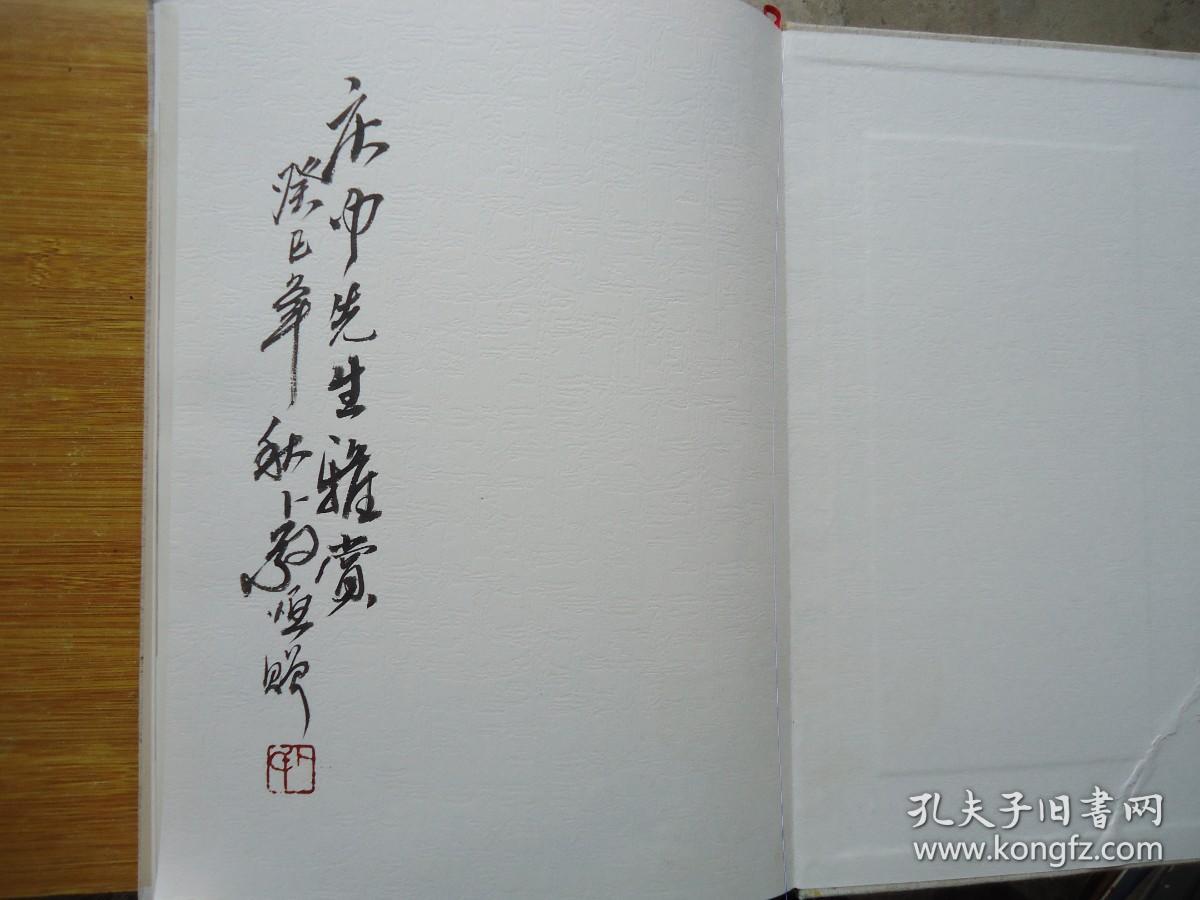 庆 先生雅赏
癸巳年秋卜敬恒赠
孔夫子旧書网
www.kongfz.com